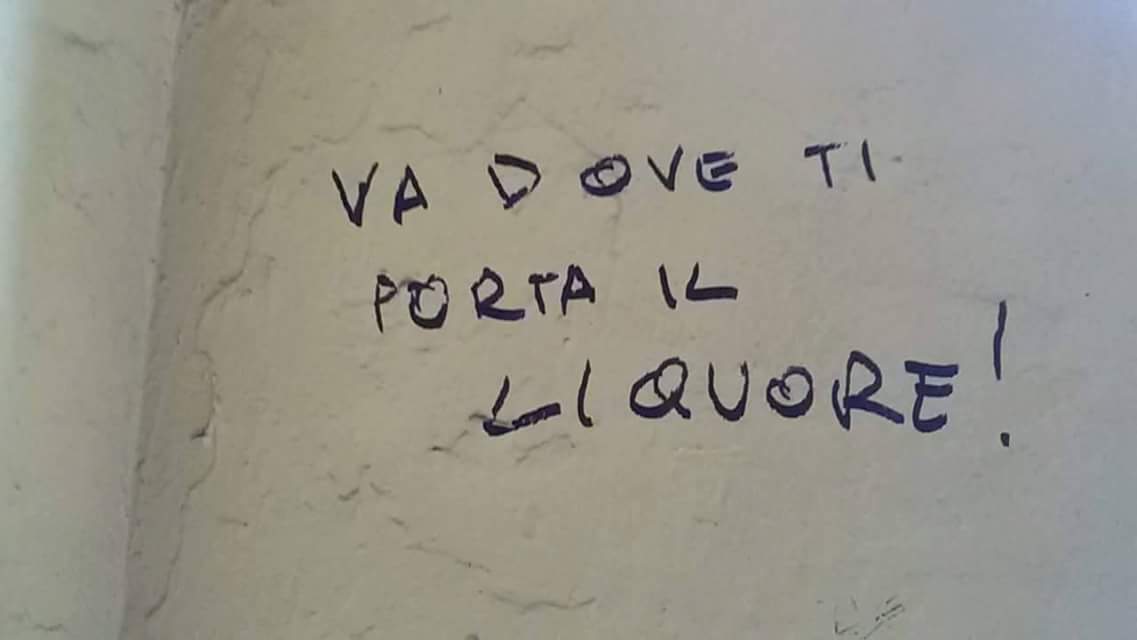 VA DOVE TI
PORTA IL
LIQUORE!